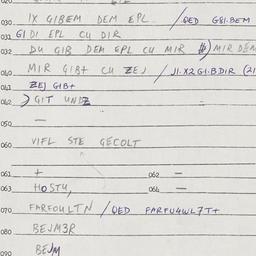 030 IX GIBEM DEM EPL / QED G8I.BEM
031 GI DI EPL CU DIR
032 DU GIB DEM EPL CU MIR MIR DEM
040 MIR GIB+ CU ZEJ / JI.X2GI.BDIR (21
041 ZEJ GIB+
042 GIT UND
050 —
060 VIFL STE GECOLT
061 + 062 —
063 HOST4, 064 —
070 FARFOULTN / QED FARFU4WL7T+
080 BEJM3R
090 BEJM